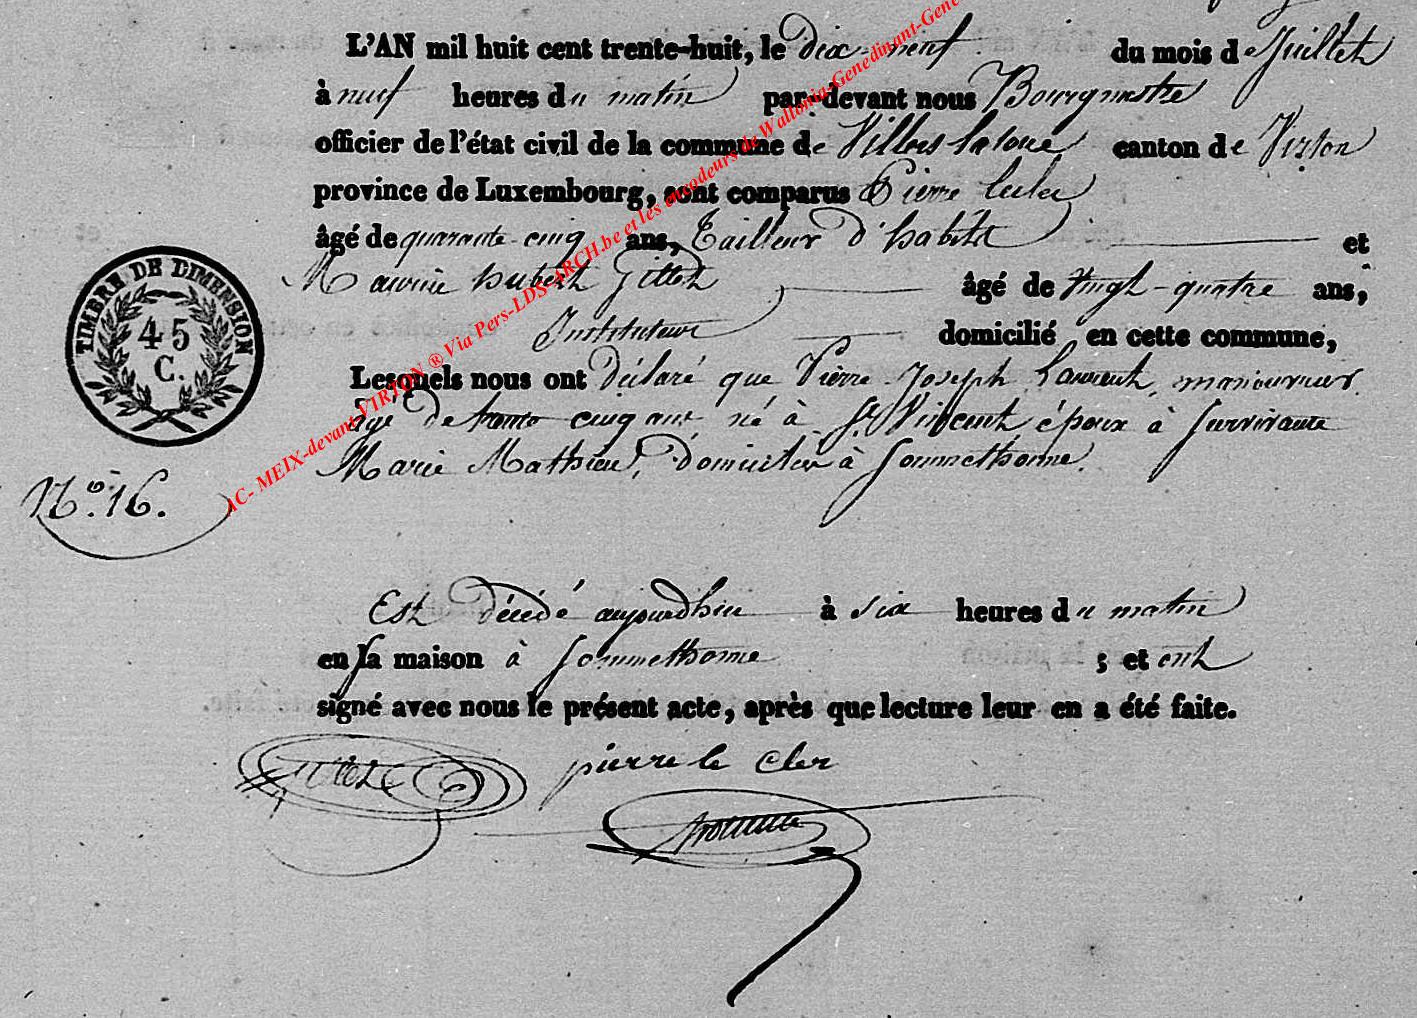 L'AN mil huit cent trente-huit, le dix-neuf du mois de Juillet
à neuf heures du matin par-devant nous Bourgmestre
officier de l'état civil de la commune de Villers la loue canton de Virton
province de Luxembourg, sont comparus Pierre
âgé de quarante-cinq ans, Tailleur d'habits et
hubert Gillet âgé de vingt-quatre ans,
Instituteur domicilié en cette commune,
Lesquels nous ont déclaré que Pierre Joseph Laurent, manouvrier
âgé de trente cinq ans né à St Vincent époux à survivante
Marie Mathieu, domicilié à Sommethonne.
TIMBRE DE DIMENSION
45
C.
No. 16.
Est décédé aujourdhui à six heures du matin
en sa maison à Sommethonne ; et ont
signé avec nous le présent acte, après que lecture leur en a été faite.
Gillet pierre le cler
AC- MEIX-devant-VIRTON ® Via Pers-LDS-ARCH.be et les encodeurs de Wallonia-Genedinant-Gene